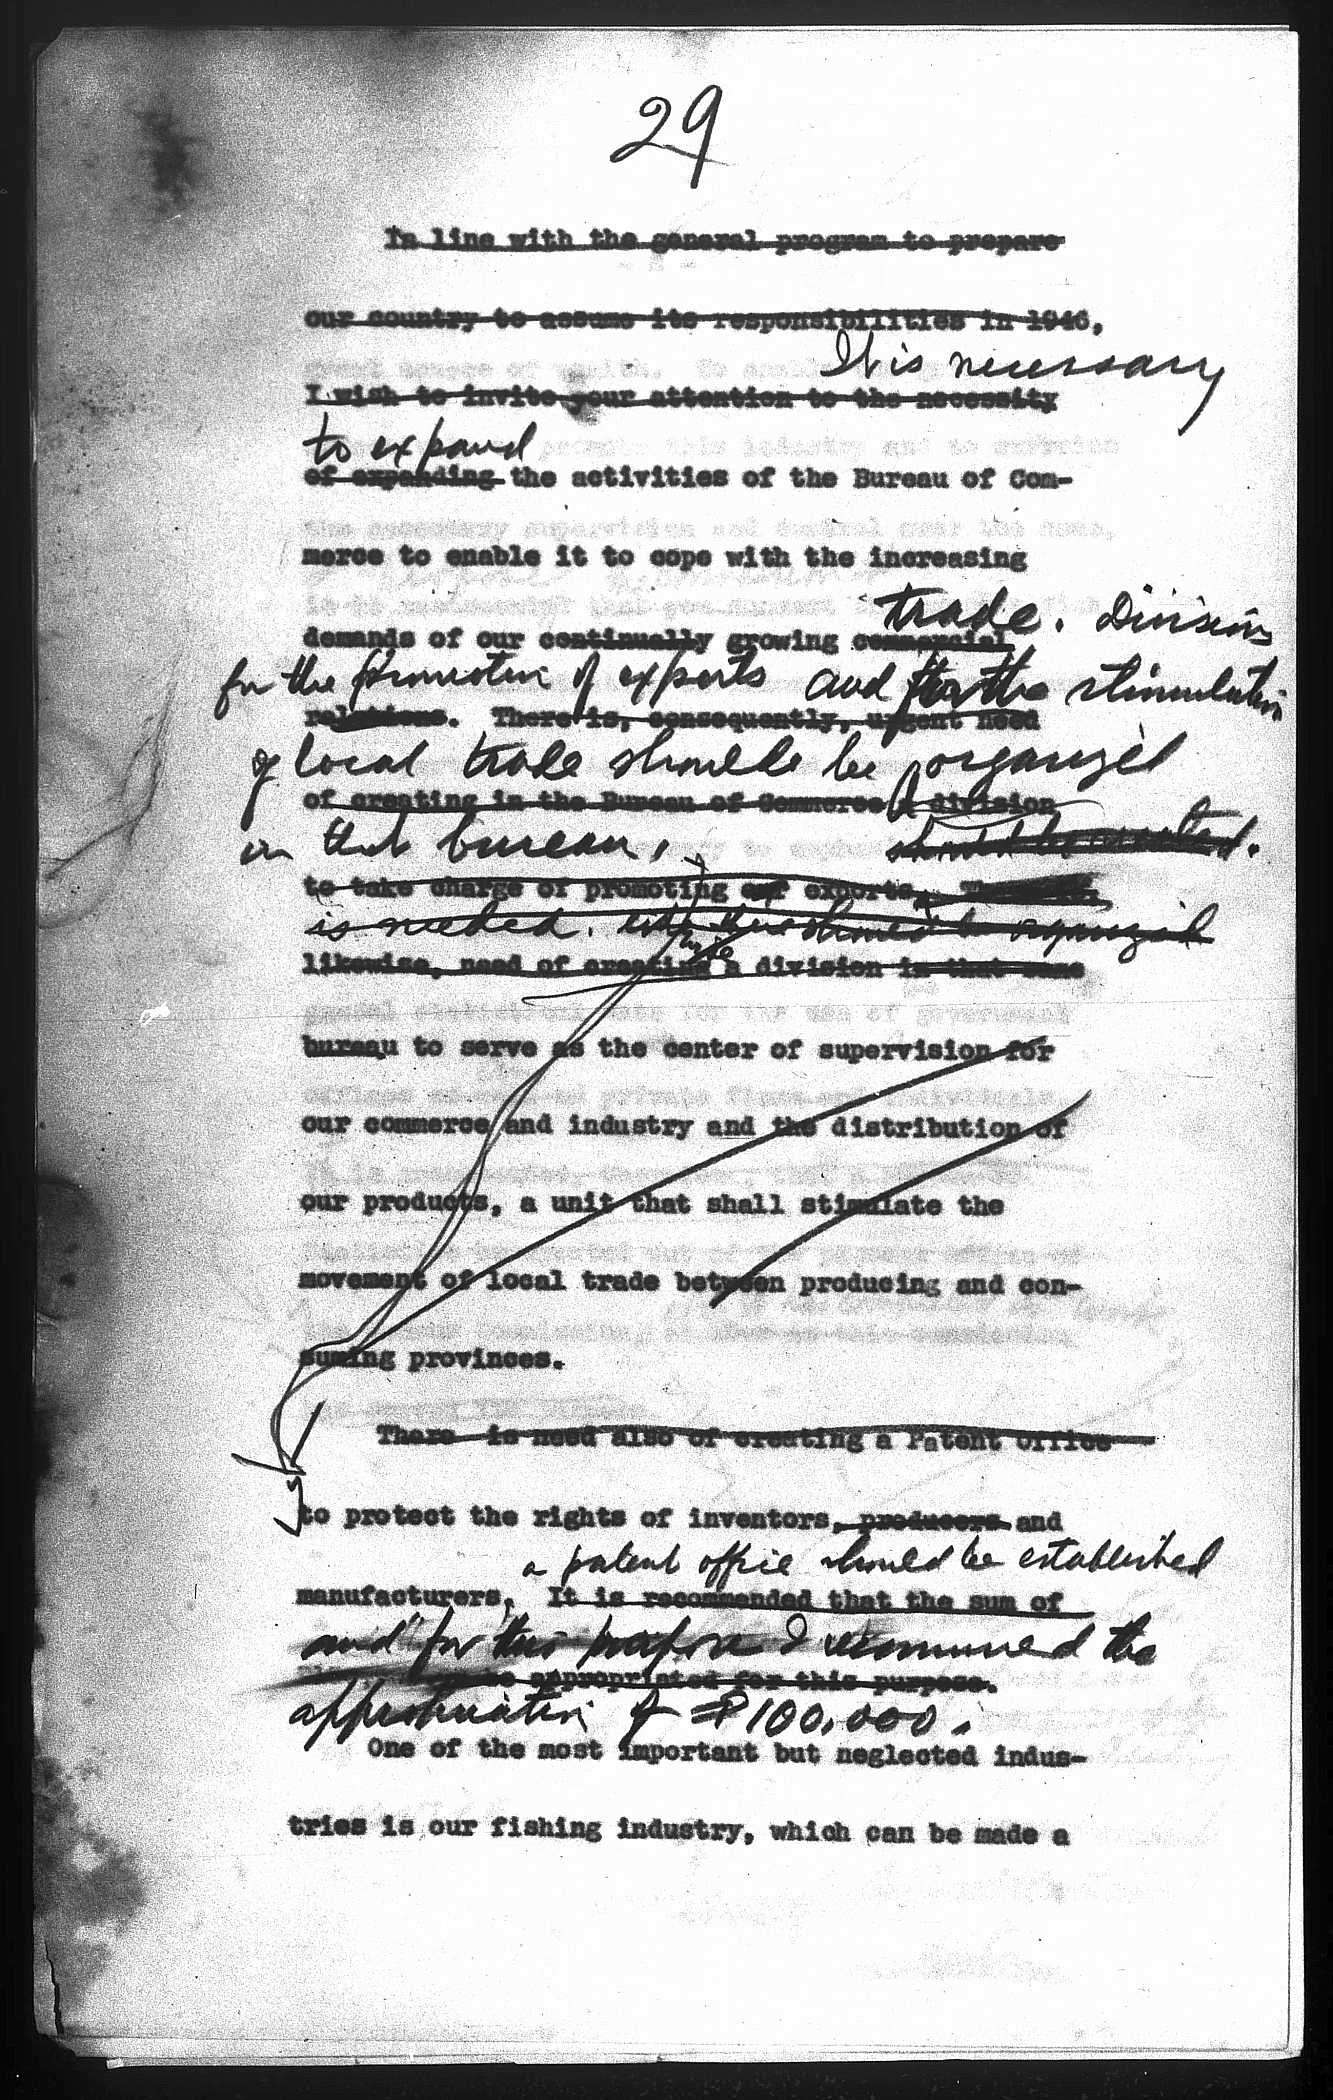 29
In line with the general program to prepare
our country to assume its responsibilities in 1946,
It is necessary
I wish to invite your attention to the necessity
to expand
of expanding the activities of the Bureau of Com-
merce to enable it to cope with the increasing
trade. Divisions
demands of our continually growing commercial
for the promotion of exports and for the stimulation
relations. There is, consequently, urgent need
of local trade should be organized
of creating in the Bureau of Commerce A division
in that bureau.
should be created.
to take charge of promoting our exports.
is needed. there should be organized
likewise, need of creating a division in that same
bureau to serve as the center of supervision for
our commerce and industry and the distribution of
our products, a unit that shall stimulate the
movement of local trade between producing and con-
suming provinces.
There is need also of creating a Patent Office
to protect the rights of inventors, producers and
a patent office should be established
manufacturers, It is recommended that the sum of
and for this purpose I recommend the
be appropriated for this purpose.
appropriation of ₱100,000.
One of the most important but neglected indus-
tries is our fishing industry, which can be made a